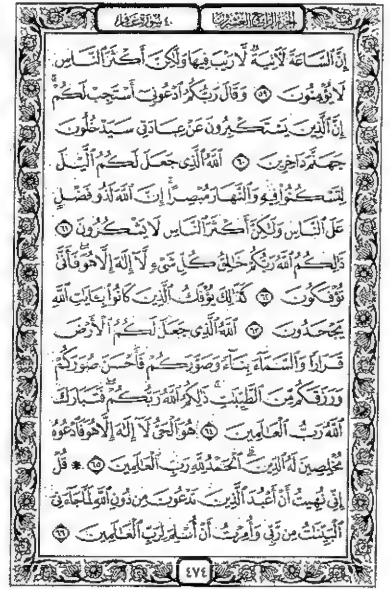 الجزء الرابع والعشرون ٤٠ سورة غافر
إِنَّ ٱلسَّاعَةَ لَأٓتِيَةٌ لَّا رَيْبَ فِيهَا وَلَٰكِنَّ أَكْثَرَ ٱلنَّاسِ
لَا يُؤْمِنُونَ ٥٩ وَقَالَ رَبُّكُمُ ٱدْعُونِىٓ أَسْتَجِبْ لَكُمْ ۚ
إِنَّ ٱلَّذِينَ يَسْتَكْبِرُونَ عَنْ عِبَادَتِى سَيَدْخُلُونَ
جَهَنَّمَ دَاخِرِينَ ٦٠ ٱللَّهُ ٱلَّذِى جَعَلَ لَكُمُ ٱلَّيْلَ
لِتَسْكُنُوا۟ فِيهِ وَٱلنَّهَارَ مُبْصِرًا ۚ إِنَّ ٱللَّهَ لَذُو فَضْلٍ
عَلَى ٱلنَّاسِ وَلَٰكِنَّ أَكْثَرَ ٱلنَّاسِ لَا يَشْكُرُونَ ٦١
ذَٰلِكُمُ ٱللَّهُ رَبُّكُمْ خَٰلِقُ كُلِّ شَىْءٍ لَّآ إِلَٰهَ إِلَّا هُوَ ۖ فَأَنَّىٰ
تُؤْفَكُونَ ٦٢ كَذَٰلِكَ يُؤْفَكُ ٱلَّذِينَ كَانُوا۟ بِـَٔايَٰتِ ٱللَّهِ
يَجْحَدُونَ ٦٣ ٱللَّهُ ٱلَّذِى جَعَلَ لَكُمُ ٱلْأَرْضَ
قَرَارًا وَٱلسَّمَآءَ بِنَآءً وَصَوَّرَكُمْ فَأَحْسَنَ صُوَرَكُمْ
وَرَزَقَكُم مِّنَ ٱلطَّيِّبَٰتِ ۚ ذَٰلِكُمُ ٱللَّهُ رَبُّكُمْ ۖ فَتَبَارَكَ
ٱللَّهُ رَبُّ ٱلْعَٰلَمِينَ ٦٤ هُوَ ٱلْحَىُّ لَآ إِلَٰهَ إِلَّا هُوَ فَٱدْعُوهُ
مُخْلِصِينَ لَهُ ٱلدِّينَ ۗ ٱلْحَمْدُ لِلَّهِ رَبِّ ٱلْعَٰلَمِينَ ٦٥ * قُلْ
إِنِّى نُهِيتُ أَنْ أَعْبُدَ ٱلَّذِينَ تَدْعُونَ مِن دُونِ ٱللَّهِ لَمَّا جَآءَنِىَ
ٱلْبَيِّنَٰتُ مِن رَّبِّى وَأُمِرْتُ أَنْ أُسْلِمَ لِرَبِّ ٱلْعَٰلَمِينَ ٦٦
٤٧٤